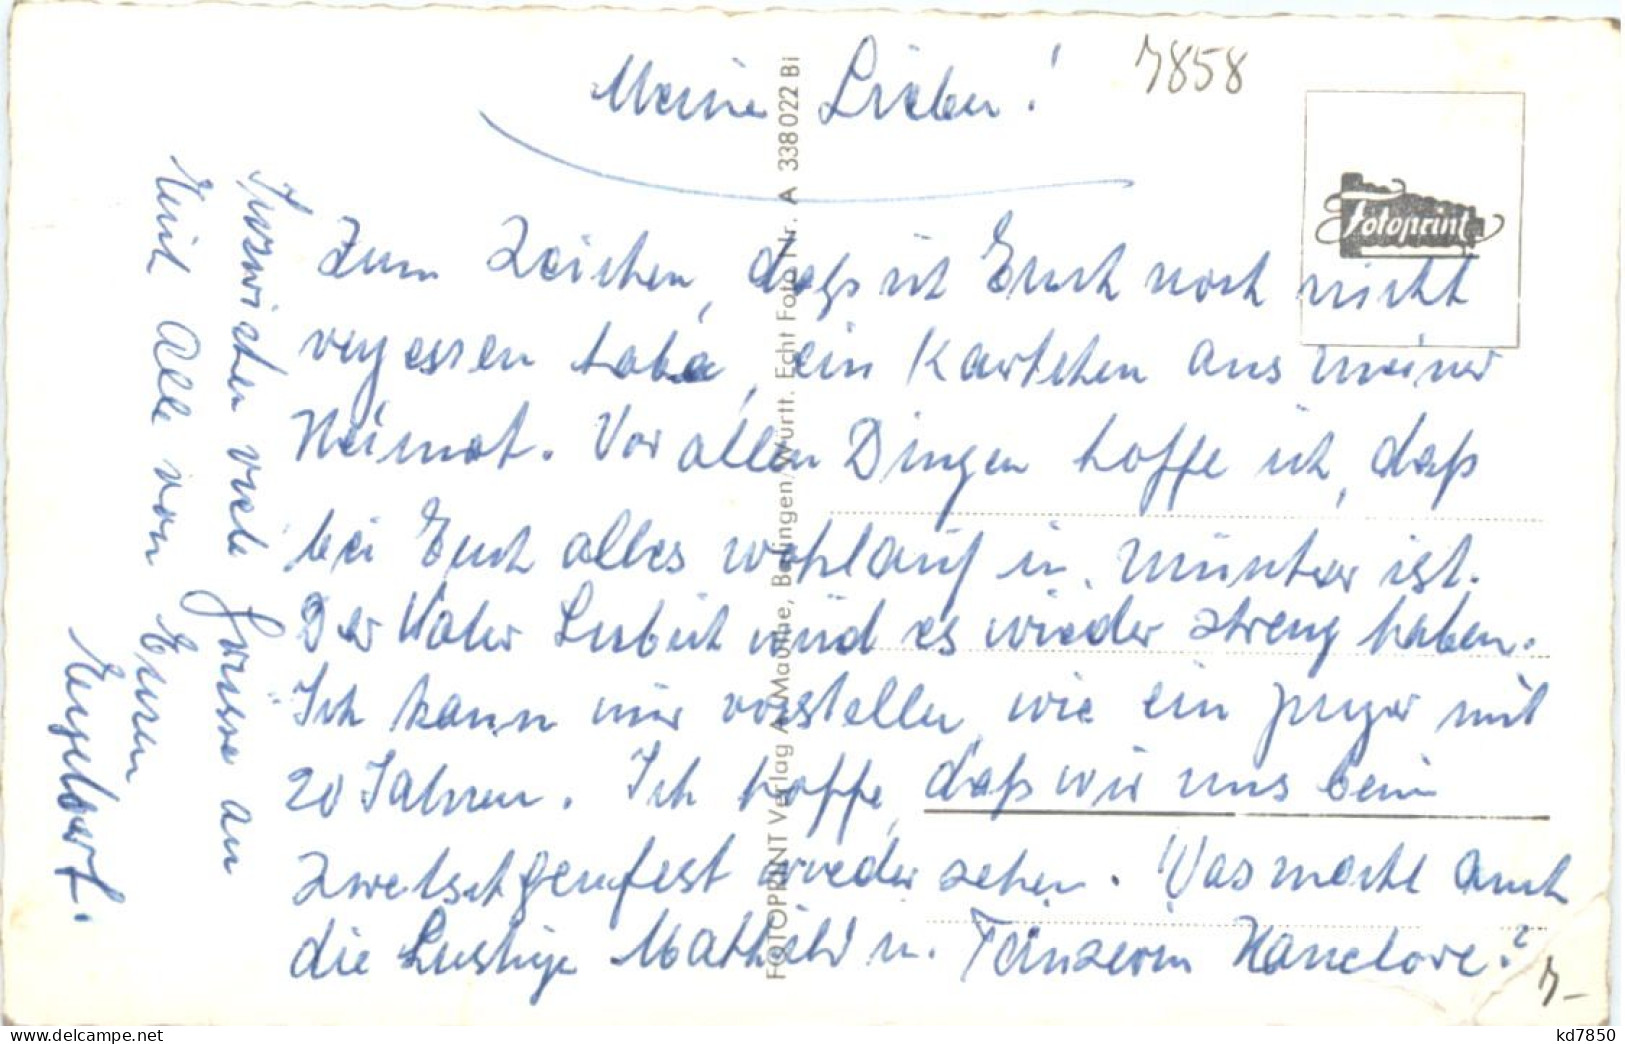 7858
Meine Lieben!
Fotoprint
Zum Zeichen, daß ich Euch noch nicht
vergessen habe, ein Kärtchen aus meiner
Heimat. Vor allen Dingen hoffe ich, daß
bei Euch alles wohlauf u. munter ist.
Der Vater wird es wieder streng haben.
Ich kann mir vorstellen, wie ein junger mit
20 Jahren. Ich hoffe, daß wir uns beim
Zwetschgenfest wieder sehen. Was macht auch
die Lustige Mathild u. Tänzerin Hanelore?
Inzwischen viele Grüsse an
Euch Alle von Euren
Engelbert.
FOTOPRINT Verlag A. Mauthe, Balingen/Württ. Echt Foto Nr. A 338022 Bi
7-
kd7850